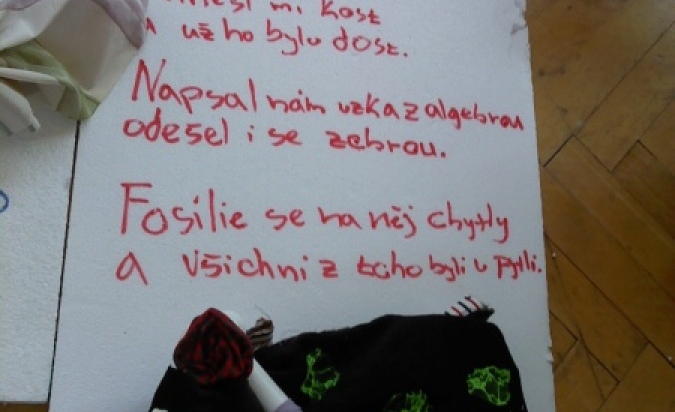 mi kost
a už ho bylo dost.
Napsal nám vzkaz algebrou
odesel i se zebrou.
Fosilie se na něj chytly
a všichni z toho byli v pytli.